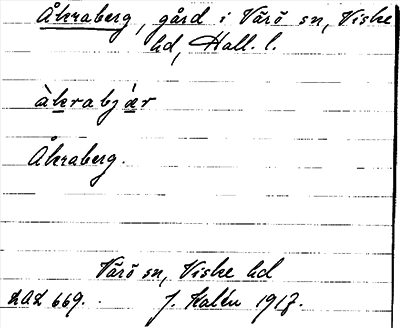 Åkraberg, gård i Värö sn, Viske
hd, Hall. l.
àkrabjǽr
Åkraberg.
Värö sn, Viske hd
LAL 669. J. Kalén 1917.